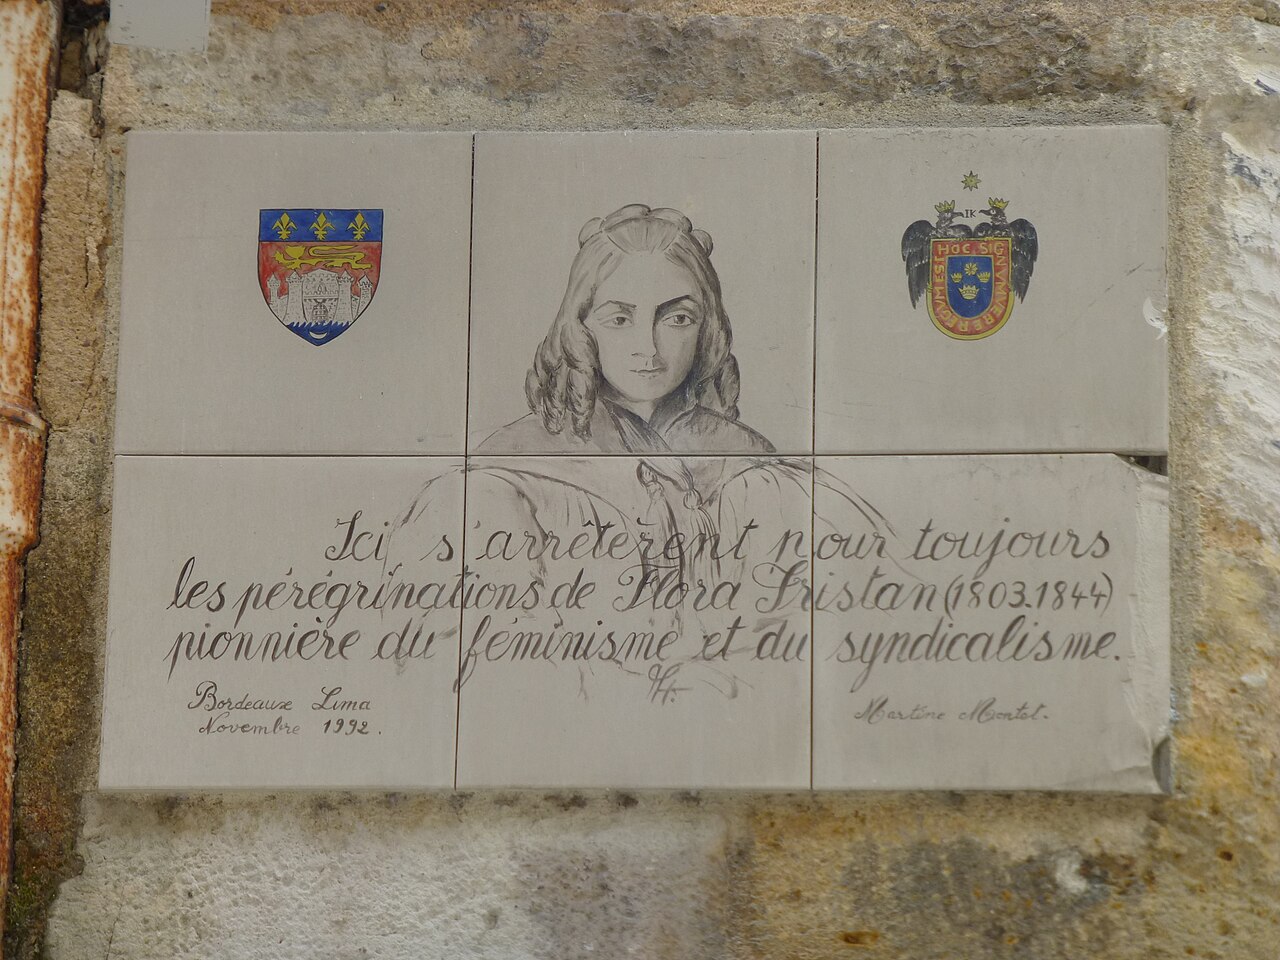 IK
HOC SIGNVM VERE REGVM EST
Ici s'arrêtèrent pour toujours
les pérégrinations de Flora Tristan (1803.1844)
pionnière du féminisme et du syndicalisme.
Bordeaux Lima
Novembre 1992.
Martine Montet.